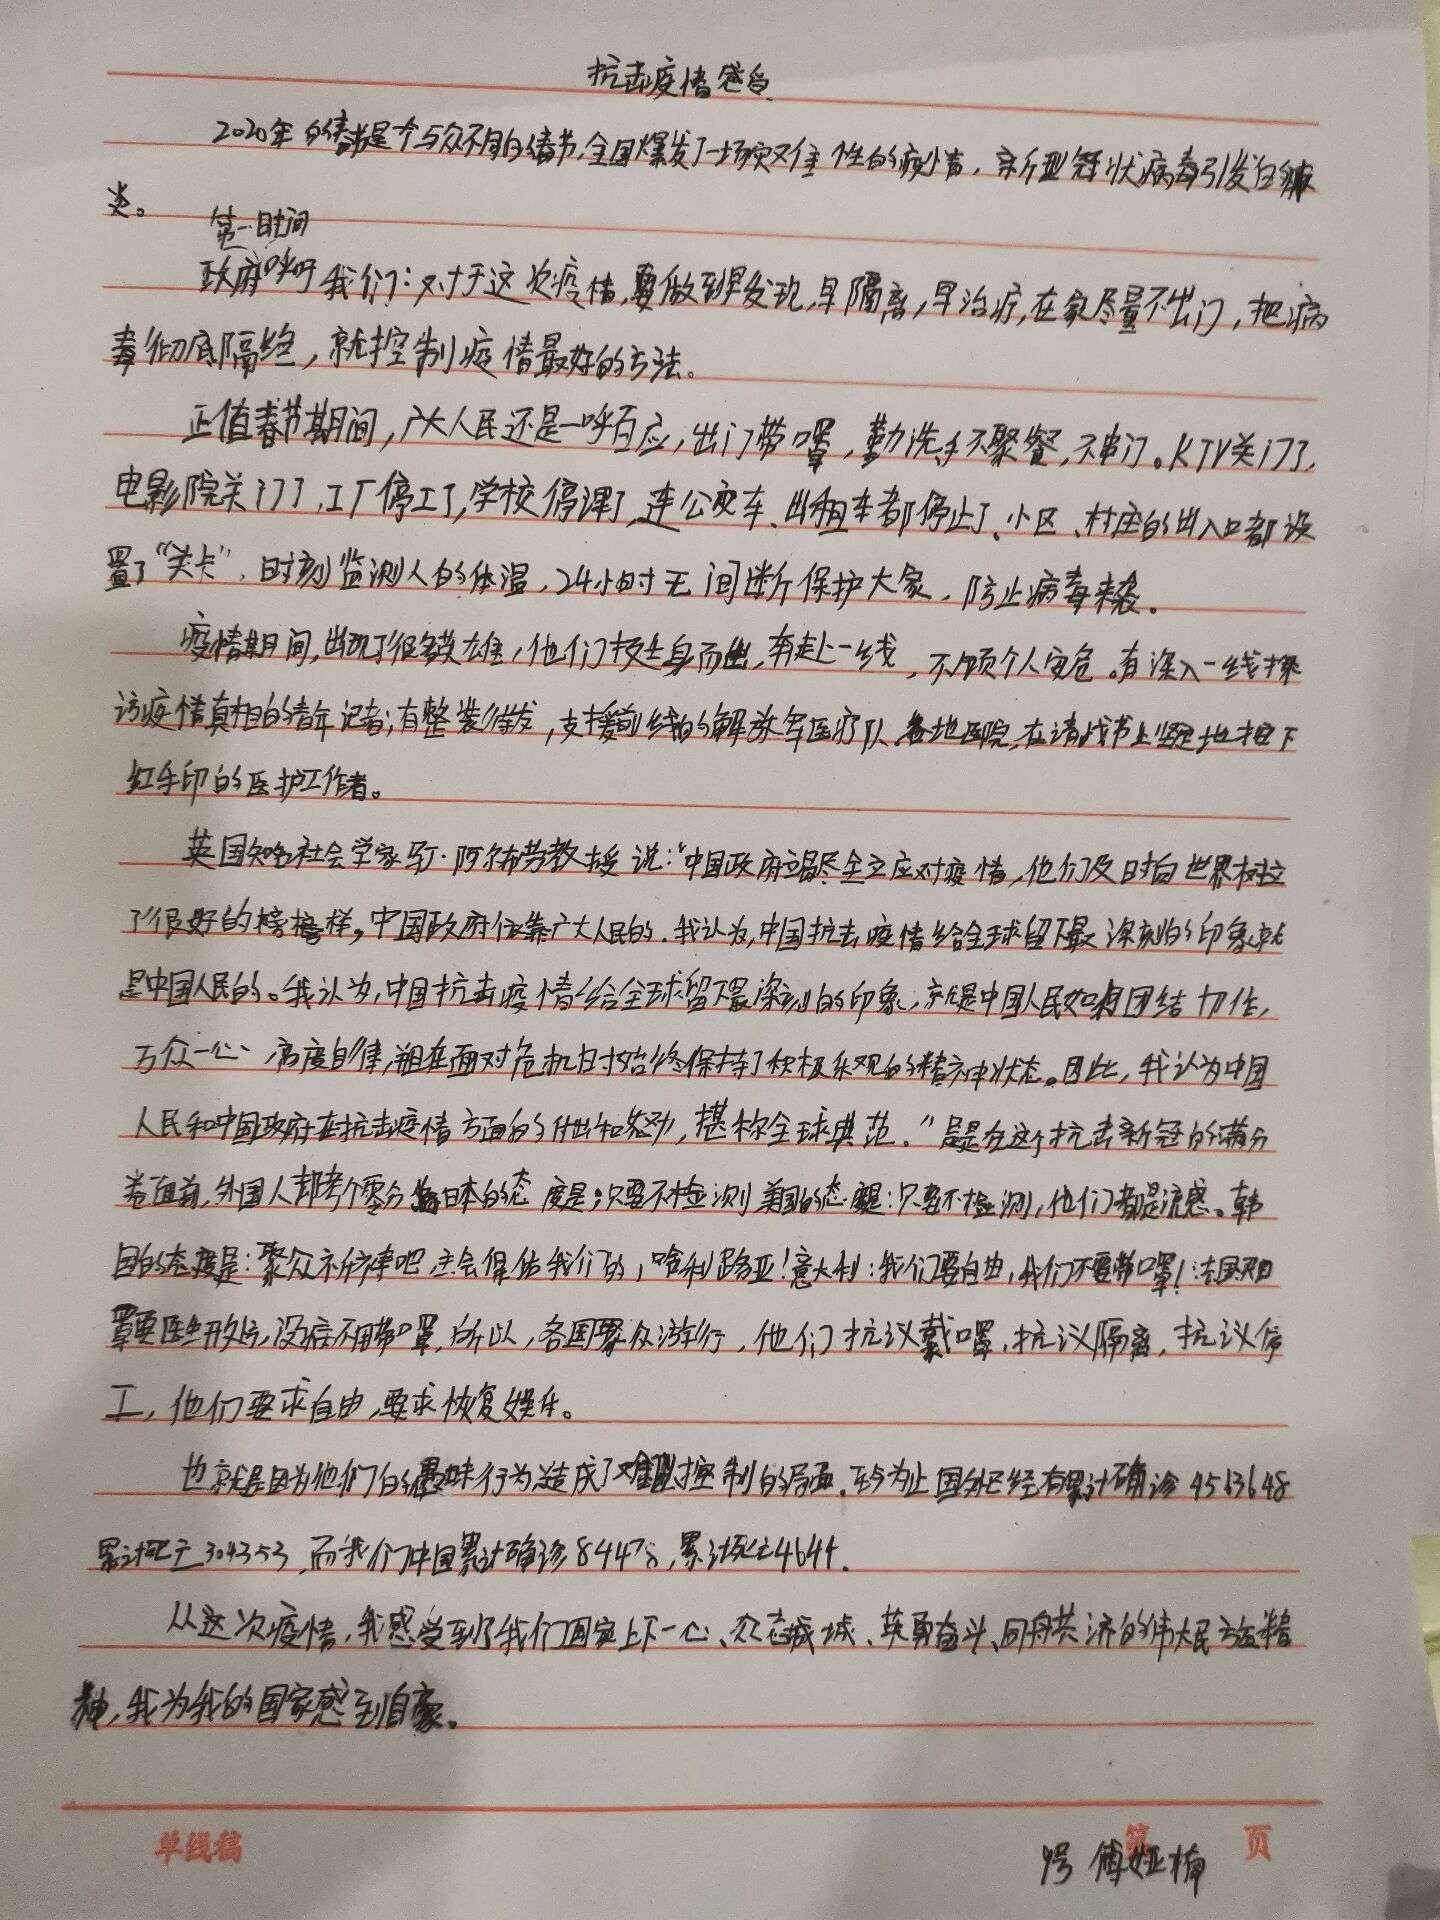 抗击疫情感受
2020年的春节是个与众不同的春节,全国爆发了一场突发性的疫情,新型冠状病毒引发的肺
炎。
第一时间
政府呼吁我们:对于这次疫情,要做到早发现,早隔离,早治疗,在家尽量不出门,把病
毒彻底隔绝,就控制疫情最好的方法。
正值春节期间,广大人民还是一呼百应,出门带口罩,勤洗手不聚餐,不串门。KTV关门了,
电影院关门了,工厂停工了,学校停课了,连公交车、出租车都停止了、小区、村庄的出入口都设
置了“关卡”,时刻监测人的体温,24小时无间断保护大家,防止病毒来袭。
疫情期间,出现了很多英雄,他们挺身而出,奔赴一线,不顾个人安危。有深入一线探
访疫情真相的青年记者;有整装待发,支援前线的解放军医疗队.各地医院,在请战书上坚定地按下
红手印的医护工作者。
英国知名社会学家马丁·阿尔布劳教授说:“中国政府竭尽全力应对疫情,他们及时向世界树立
了很好的榜样,中国政府依靠广大人民的.我认为,中国抗击疫情给全球留下最深刻的印象就
是中国人民的。我认为,中国抗击疫情给全球留下最深刻的印象,就是中国人民如何团结协作,
万众一心、高度自律,并在面对危机时始终保持了积极乐观的精神状态。因此,我认为中国
人民和中国政府在抗击疫情方面的付出和努力,堪称全球典范.”但是在这个抗击新冠的满分
卷面前,外国人却考个零分.日本的态度是:只要不检测 美国的态度是:只要不检测,他们都是流感。韩
国的态度是:聚众祈祷吧 主会保佑我们的,哈利路亚!意大利:我们要自由,我们不要带口罩!法国买口
罩要医生开处方,没病不用带口罩,所以,各国聚众游行,他们抗议戴口罩,抗议隔离,抗议停
工,他们要求自由,要求恢复娱乐。
也就是因为他们的愚昧行为造成了难控制的局面.至今为止国外已经有累计确诊4563648
累计死亡304353,而我们中国累计确诊84478,累计死亡4644.
从这次疫情,我感受到了我们国家上下一心、众志成城、英勇奋斗、同舟共济的伟大民族精
神,我为我的国家感到自豪。
单线稿
第 页
9号 傅娅楠